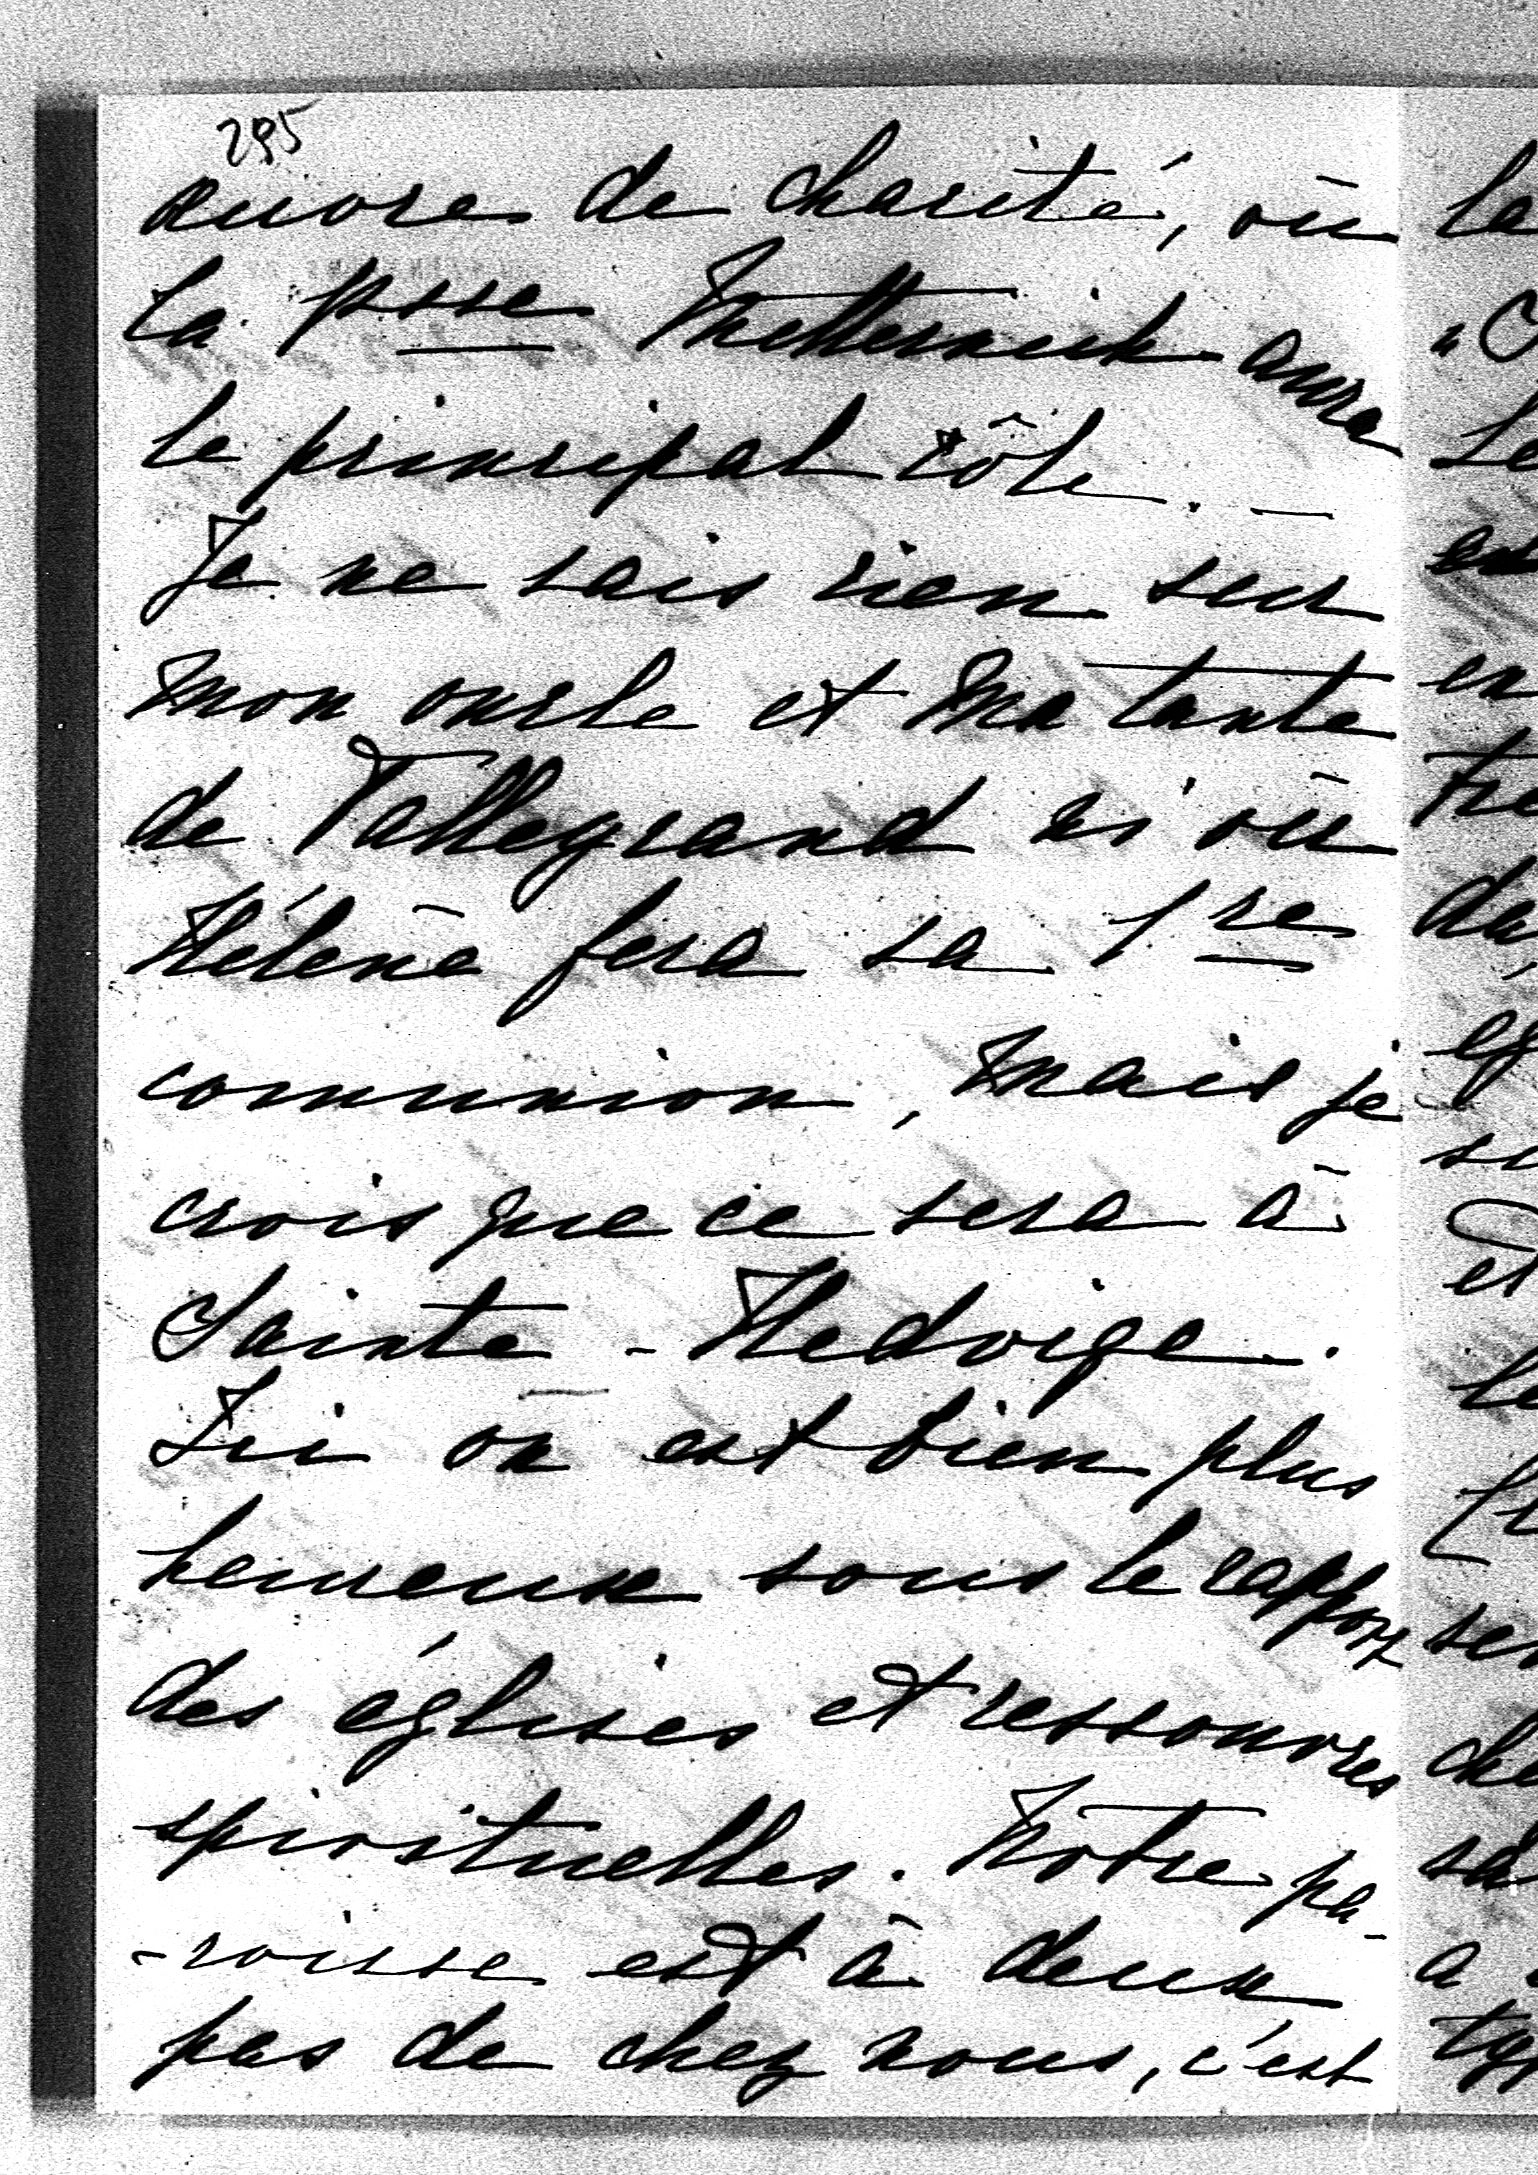 295
œuvre de charité, où
la Psse Metternich aura
le principal rôle. —
Je ne sais rien sur
mon oncle et ma tante
de Talleyrand ni où
Hélène fera sa 1re
communion, mais je
crois que ce sera à
Sainte-Hedvige.
Ici on est bien plus
heureux sous le rapport
des églises et ressources
spirituelles. Notre pa-
-roisse est à deux
pas de chez nous, c'est